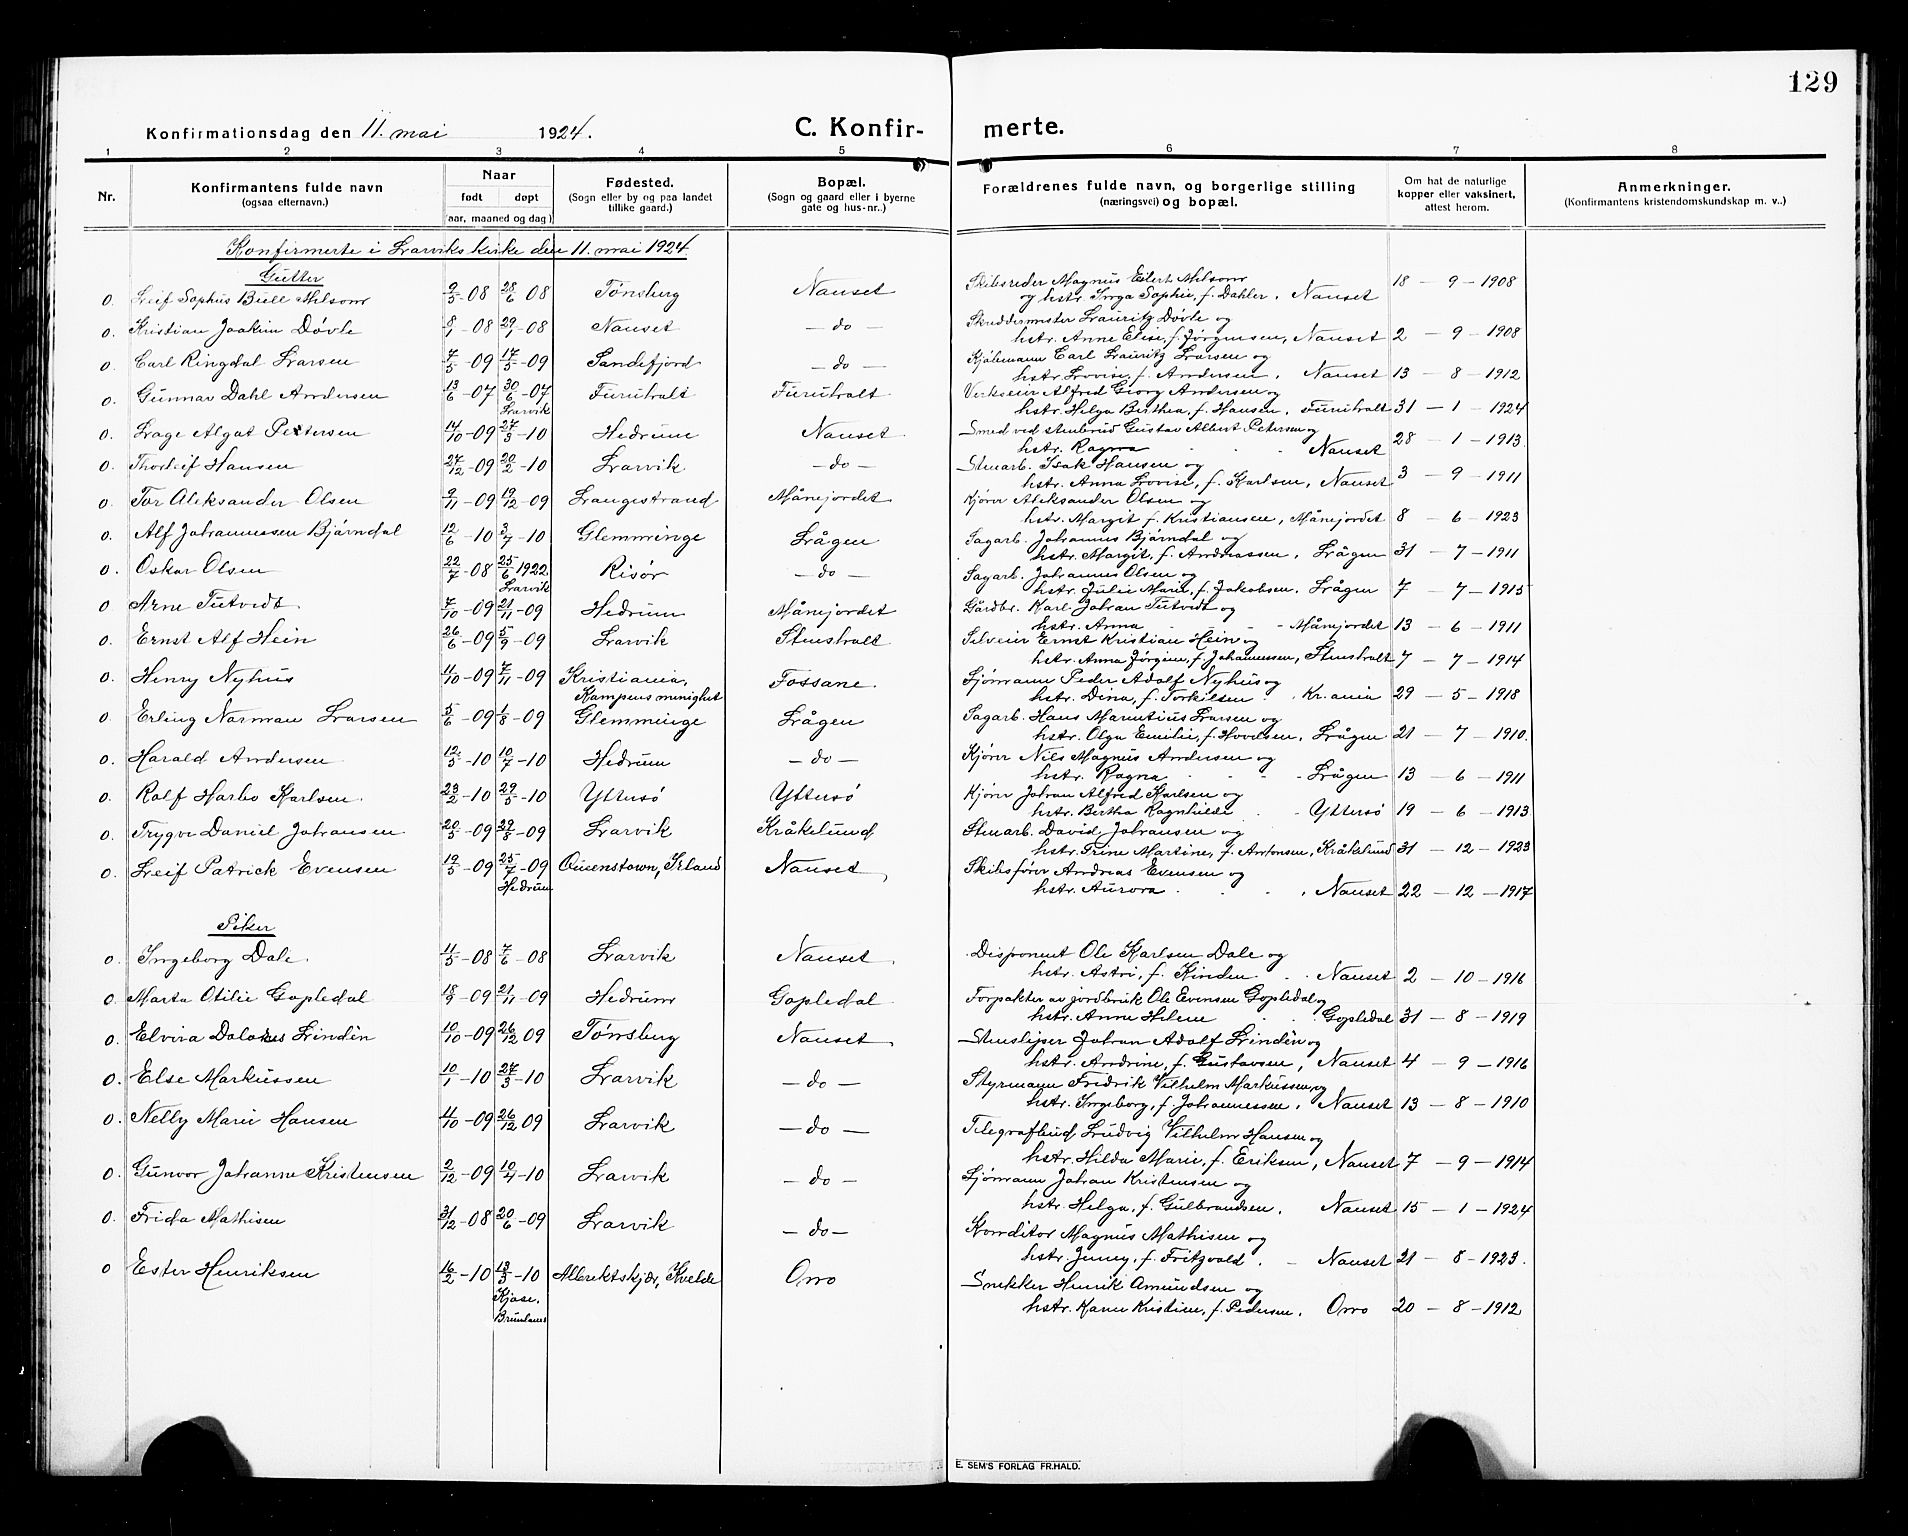 129
Konfirmationsdag den 11. mai 1924. C. Konfir- merte.
1 2 3 4 5 6 7 8
Nr. Konfirmantens fulde navn (ogsaa efternavn.) Naar født døpt (aar, maaned og dag) Fødested. (Sogn eller by og paa landet tillike gaard.) Bopæl. (Sogn og gaard eller i byerne gate og hus-nr.) Forældrenes fulde navn, og borgerlige stilling (næringsvei) og bopæl. Om hat de naturlige kopper eller vaksinert, attest herom. Anmerkninger. (Konfirmantens kristendomskundskap m. v.)
Konfirmerte i Larviks kirke den 11. mai 1924
Gutter
o. Leif Sophus Buell Melsom 9/5-08 28/6 08 Tønsberg Nanset Skibsreder Magnus Eilert Melsom
og hstr. Inga Sophie, f. Dahler. Nanset 18 - 9 - 1908
o. Kristian Joakim Døvle 8/1-08 29/1-08 Nanset - do - Skreddermester Lauritz Døvle og
hstr. Anne Elise, f. Jørgensen, Nanset 2 - 9 - 1908
o. Carl Ringdal Larsen 7/5-09 17/5-09 Sandefjord - do - Kjøbmann Carl Lauritz Larsen og
hstr. Lovise, f. Andersen. Nanset 13 - 8 - 1912
o. Gunnar Dahl Andersen 13/6-07 30/6-07 Larvik Furuholt Furuholt Verkseier Alfred Georg Andersen og
hstr. Helga Berthea, f. Hansen. Furuholt 31 - 1 - 1924
o. Lage Algot Pettersen 14/10-09 27/3-10 Hedrum Nanset Smed ved stenbrud Gustav Albert Petersen og
hstr. Ragna Nanset 28 - 1 - 1913.
o. Thorleif Hansen 27/12-09 20/2-10 Larvik - do - Stenarb. Isak Hansen og
hstr. Anna Lovise, f. Karlsen, Nanset 3 - 9 - 1911
o. Tor Aleksander Olsen 9/11-09 19/12-09 Langestrand Månejordet Kjører Aleksander Olsen og
hstr. Margit f. Kristiansen, Månejordet 8 - 6 - 1923
o. Alf Johannessen Bjørndal 12/6-10 3/7-10 Glemminge Lågen Sagarb. Johannes Bjørndal og
hstr. Margit, f. Andreassen. Lågen 31 - 7 - 1911
o. Oskar Olsen 22/7-08 25/6 1922. Larvik Risør - do - Sagarb. Johannes Olsen og
hstr. Julie Marie, f. Jakobsen. Lågen 7 - 7 - 1915
o Arne Tutvedt 7/10-09 21/11-09 Hedrum Månejordet Gårdbr. Karl Johan Tutvedt og
hstr. Anna - Månejordet 13 - 6 - 1911
o. Ernst Alf Hein 26/6-09 5/9-09 Larvik Stensholt Selveier Ernst Kristian Hein og
hstr. Anna Jørgine, f. Johannessen, Stensholt 7 - 7 - 1914
o. Henry Nyhus 4/10-09 7/11-09 Kristiania, Kampens menighet Fossane. Sjømann Peder Adolf Nyhus og
hstr. Dina, f. Torkilsen Kr.ania 29 - 5 - 1918
o. Erling Norman Larsen 5/6-09 1/8-09 Glemminge Lågen Sagarb. Hans Marentius Larsen og
hstr. Olga Emilie, f. Hovelsen, Lågen 21 - 7 - 1910.
o. Harald Andersen 12/5-10 10/7-10 Hedrum - do - Kjører Nils Magnus Andersen og
hstr. Ragna - Lågen 13 - 6 - 1911
o. Rolf Harbo Karlsen. 23/2-10 29/5-10 Yttersø Yttersø Kjører Johan Alfred Karlsen og
hstr. Bertha Ragnhilde Yttersø 19 - 6 - 1913
o. Trygve Daniel Johansen 20/5-09 29/8-09 Larvik Kråkelund Stenarb. David Johansen og
hstr. Trine Martine, f. Antonsen, Kråkelund 31 - 12 - 1923
o. Leif Patrick Evensen 19/5-09 25/7-09 Hedrum Queenstown, Irland Nanset Skibsfører Andreas Evensen og
hstr. Aurora Nanset 22 - 12 - 1917
Piker
o. Ingeborg Dale 11/5-08 7/6-08 Larvik Nanset Disponent Ole Karlsen Dale og
hstr. Astri, f. Kinden. Nanset 2 - 10 - 1916
o. Marta Otilie Gopledal 18/9-09 21/11-09 Hedrum Gopledal Forpakter av jordbruk Ole Evensen Gopledal og
hstr. Anne Helene Gopledal 31 - 8 - 1919
o. Elvira Dolores Lindén 10/10-09 26/12 09 Tønsberg Nanset Stensliper Johan Adolf Lindén og
hstr. Andrine, f. Gustavsen, Nanset 4 - 9 - 1916
o. Else Markussen 10/1-10 27/3-10 Larvik - do - Styrmann Fridrik Vilhelm Markussen, og
hstr. Ingeborg, f. Johannessen. Nanset 13 - 8 - 1910
o. Nelly Marie Hansen 4/10-09 26/12 09 Larvik - do - Telegrafbud Ludvig Vilhelm Hansen og
hstr. Hilda Marie, f. Eriksen, Nanset 7 - 9 - 1914
o. Gunvor Johanne Kristensen 2/12-09 10/4-10 Larvik - do - Sjømann Johan Kristensen og
hstr. Helga, f. Gulbrandsen. Nanset 15 - 1 - 1924
o. Frida Mathisen 31/12-08 20/6-09 Larvik - do - Konditor Magnus Mathisen og
hstr. Jenny, f. Fritzvold. - Nanset 21 - 8 - 1923.
o Ester Henriksen 16/2-10 13/3-10 Kjose, Brunlanes Albrektskjær, Kvelde Orro Snekker Henrik Amundsen og
hstr. Karen Kristine, f. Pedersen. Orro 20 - 8 - 1912
E. SEM'S FORLAG FR.HALD.